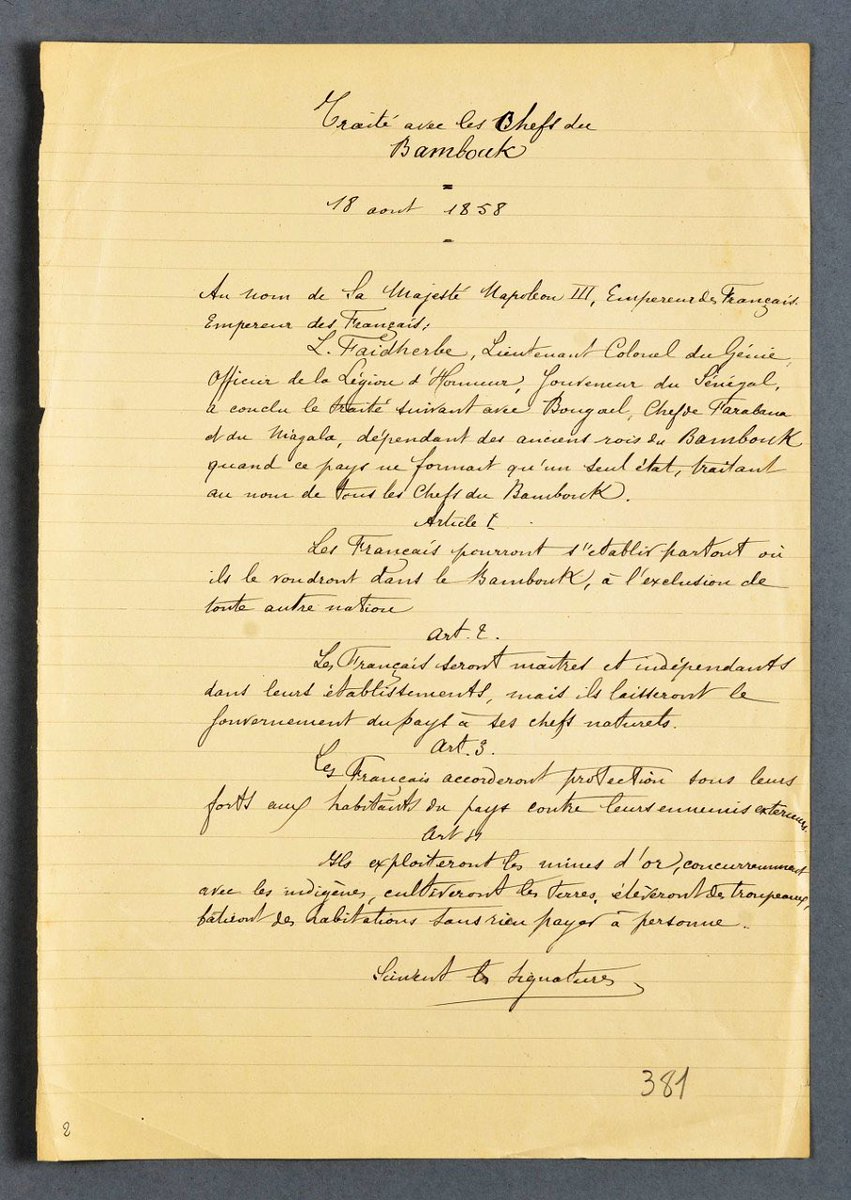 Traité avec les Chefs du
Bambouk
=
18 aout 1858
-
Au nom de Sa Majesté Napoléon III, Empereur des Français.
Empereur des Français;
L. Faidherbe, Lieutenant Colonel du Génie,
Officier de la Légion d'Honneur, Gouverneur du Sénégal,
a conclu le traité suivant avec Bougoul, Chef de Farabana
et du Niagala, dépendant des anciens rois du Bambouk
quand ce pays ne formait qu'un seul état, traitant
au nom de tous les chefs du Bambouk.
Article 1
Les Français pourront s'établir partout où
ils le voudront dans le Bambouk, à l'exclusion de
toute autre nation
Art. 2.
Les Français seront maîtres et indépendants
dans leurs établissements, mais ils laisseront le
Gouvernement du pays à ses chefs naturels.
Art. 3.
Les Français accorderont protection sous leurs
forts aux habitants du pays contre leurs ennemis exterieurs.
Art
Ils exploiteront les mines d'or, concurremment
avec les indigènes, cultiveront les terres, élèveront des troupeaux,
bâtiront des habitations sans rien payer à personne.
Suivent les signatures
381
2